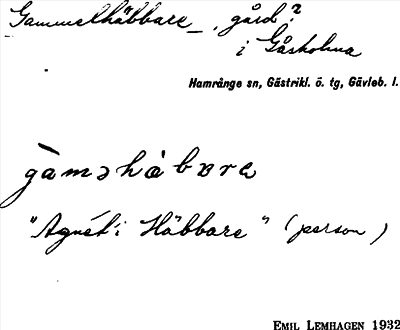 Gammelhäbbare, gård?
i Gåsholma
Hamrånge sn, Gästrikl. ö. tg, Gävleb. l.
gàməhàbɒrɐ
"Agnét i Häbbare" (person)
EMIL LEMHAGEN 1932